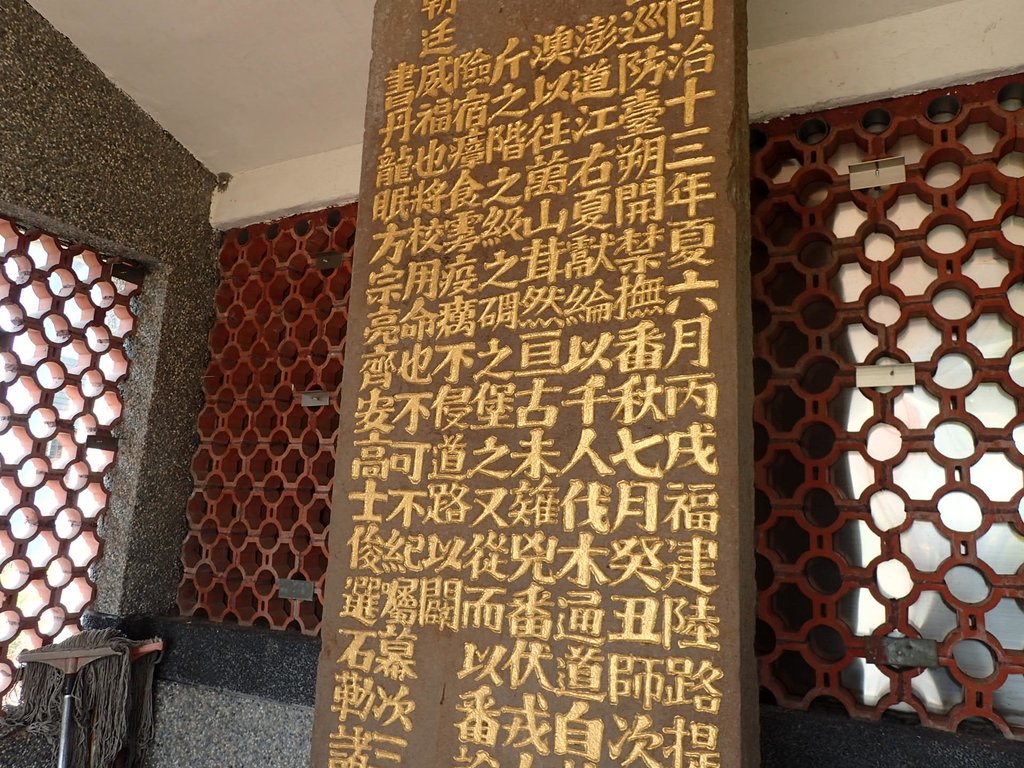 同治十三年夏六月丙戌福建陸路提
巡防臺朔開禁撫番秋七月癸丑師次
澎道江右夏獻綸以千人伐木通道自
澳以往萬山茸然亘古未薙兇番伏戎
斤之階之級之磵之堡之又從而以番
險宿瘴食雾疫癘不侵道路以闢
朝廷威福也將校用命也不可不紀屬幕次三
書丹龍眠方宗亮齊安高士俊選石勒諸